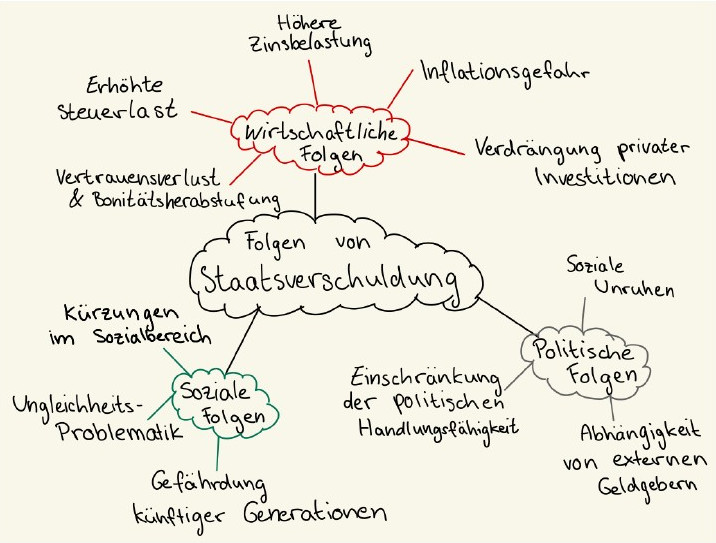 Höhere
Zinsbelastung
Inflationsgefahr
Erhöhte
Steuerlast
Wirtschaftliche
Folgen
Verdrängung privater
Investitionen
Vertrauensverlust
& Bonitätsherabstufung
Folgen von
Staatsverschuldung
Soziale
Unruhen
Kürzungen
im Sozialbereich
Politische
Folgen
Einschränkung
der politischen
Handlungsfähigkeit
Soziale
Folgen
Ungleichheits-
Problematik
Abhängigkeit
von externen
Geldgebern
Gefährdung
künftiger Generationen